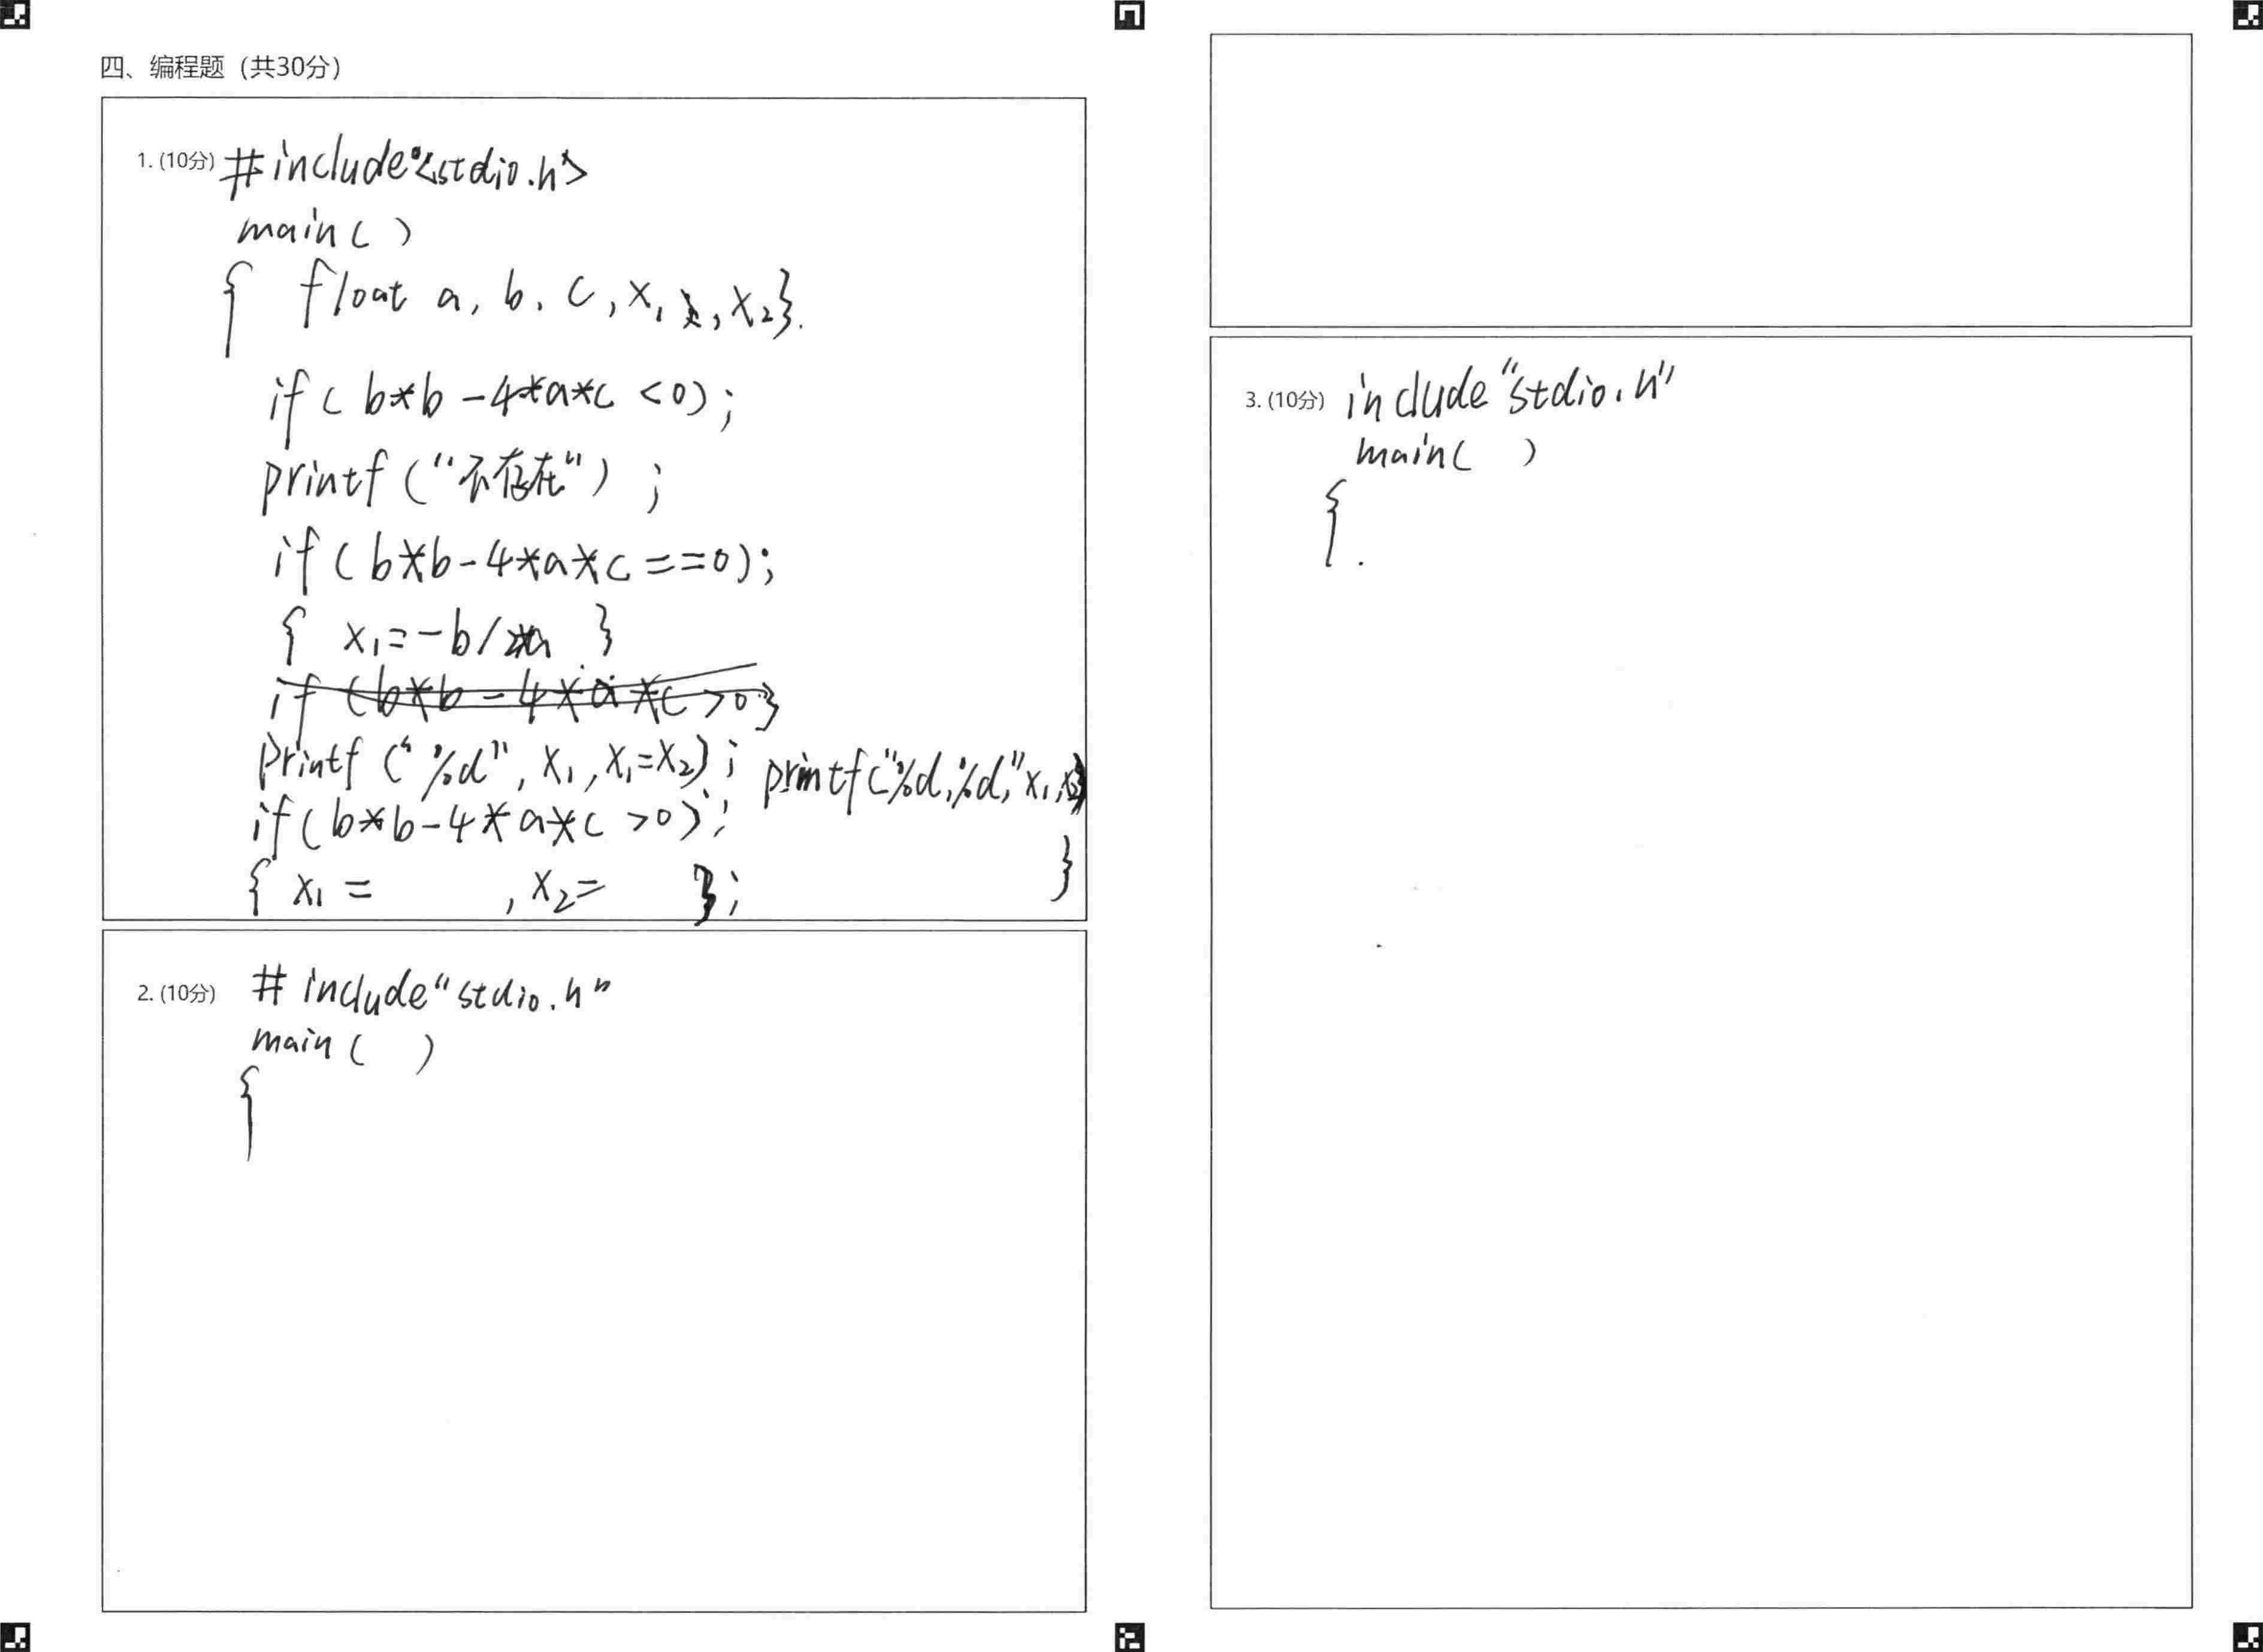 四、编程题（共30分）
1. (10分) #include"<stdio.h">
main( )
{ float a, b, c, x1, x2}.
if( b*b-4*a*c <0);
printf("不存在") ;
if(b*b-4*a*c==0);
{ x1=-b/2*a }
if (b*b-4*a*c>0)
printf("%d", x1, x1=x2); printf("%d,%d,"x1,x2)
if(b*b-4*a*c >0);
{ x1= , x2= };
}
2. (10分) #include"stdio.h"
main( )
{
3. (10分) include"stdio.h"
main( )
{ .